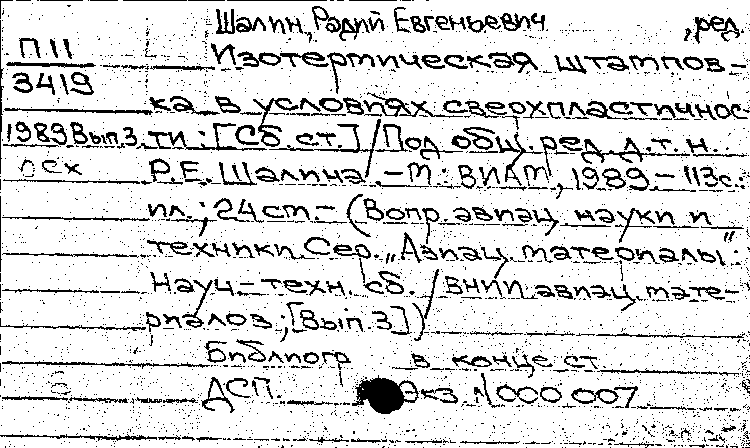 Шалин, Радий Евгеньевич, ред.
П 11
3419
Изотермическая штампов-
ка в условиях сверхпластичнос
1989 Вып.3. ти : [Сб. ст.] / Под общ. ред. д.т.н.
осх Р.Е. Шалина. - М : ВИАМ, 1989. - 113 с.:
ил.; 24 см. - (Вопр. авиац. науки и
техники. Сер. „Авиац. материалы":
Науч.-техн. сб. / ВНИИ авиац. мате-
риалов; [Вып. 3])
Библиогр в конце ст.
ДСП. Экз. N 000 007